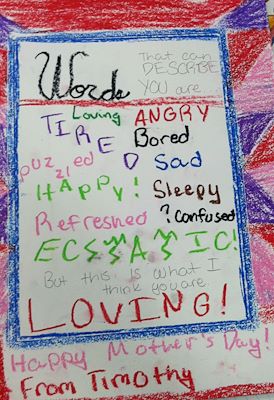 Words
That can
DESCRIBE
YOU are
Loving ANGRY
TIRED Bored
puzzled Sad
HAPPY! Sleepy
Refreshed ? Confused
ECSTATIC!
But this is what I
think you are
LOVING!
Happy Mother's Day!
From Timothy